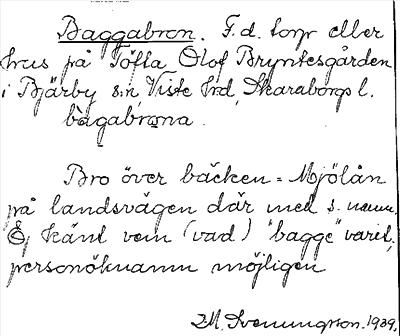 Baggabron. F.d. torp eller
hus på Tófta Olof Bryntesgården
i Bjärby sn, Viste hd, Skaraborgs l.
bàgabrω̄na.
Bro över bäcken = Mjölån
på landsvägen där med s. namn.
Ej känt vem (vad) "bagge" varit,
personöknamn möjligen
M. Svenungson. 1939.